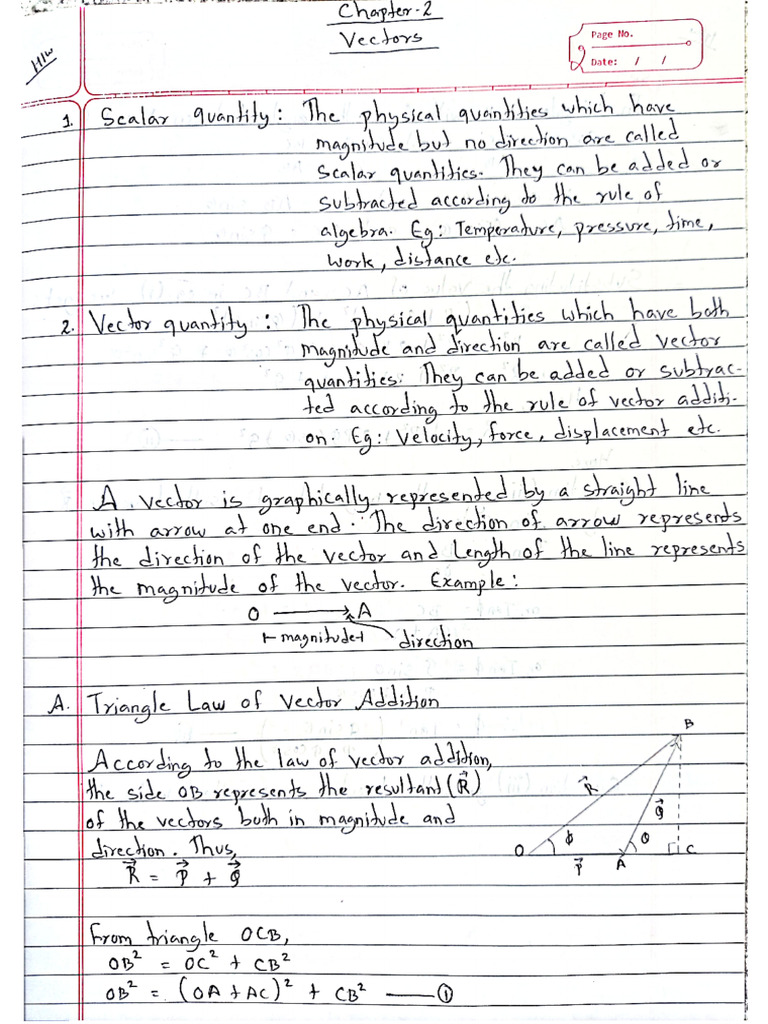 Chapter-2
Vectors
H/W
Page No.
Date: / /
1. Scalar quantity: The physical quaintities which have
magnitude but no direction are called
scalar quantities. They can be added or
subtracted according to the rule of
algebra. Eg: Temperature, pressure, time,
work, distance etc.
2. Vector quantity: The physical quantities which have both
magnitude and direction are called vector
quantities. They can be added or subtrac-
ted according to the rule of vector additi-
on. Eg: Velocity, force, displacement etc.
A vector is graphically represented by a straight line
with arrow at one end. The direction of arrow represents
the direction of the vector and length of the line represents
the magnitude of the vector. Example:
O → A
⊢ magnitude ⊣ direction
A. Triangle Law of vector Addition
B
According to the law of vector addition,
the side OB represents the resultant (R⃗)
of the vectors both in magnitude and
direction. Thus,
R⃗ = P⃗ + Q⃗
R⃗
Q⃗
O ϕ P⃗ A θ C
From triangle OCB,
OB² = OC² + CB²
OB² = (OA + AC)² + CB² —— ①